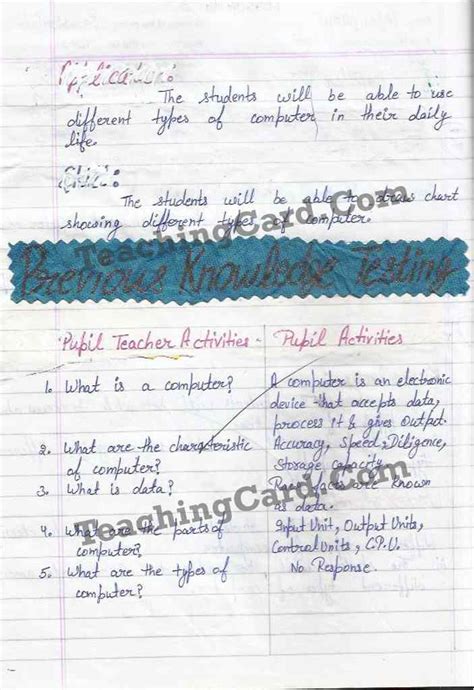 Application:
The students will be able to use
different types of computer in their daily
life.
Skill:
The students will be able to draw chart
showing different types of computer.
TeachingCard.Com
Previous Knowledge Testing
Pupil Teacher Activities - Pupil Activities
1. What is a computer? A computer is an electronic
device that accepts data,
process it & gives Output.
2. What are the characteristic Accuracy, Speed, Diligence,
of computer? Storage capacity
3. What is data? Raw faces are known
as data.
TeachingCard.Com
4. What are the parts of Input Unit, Output Units,
computer? Control Units, C.P.U.
5. What are the types of No Response.
computer?